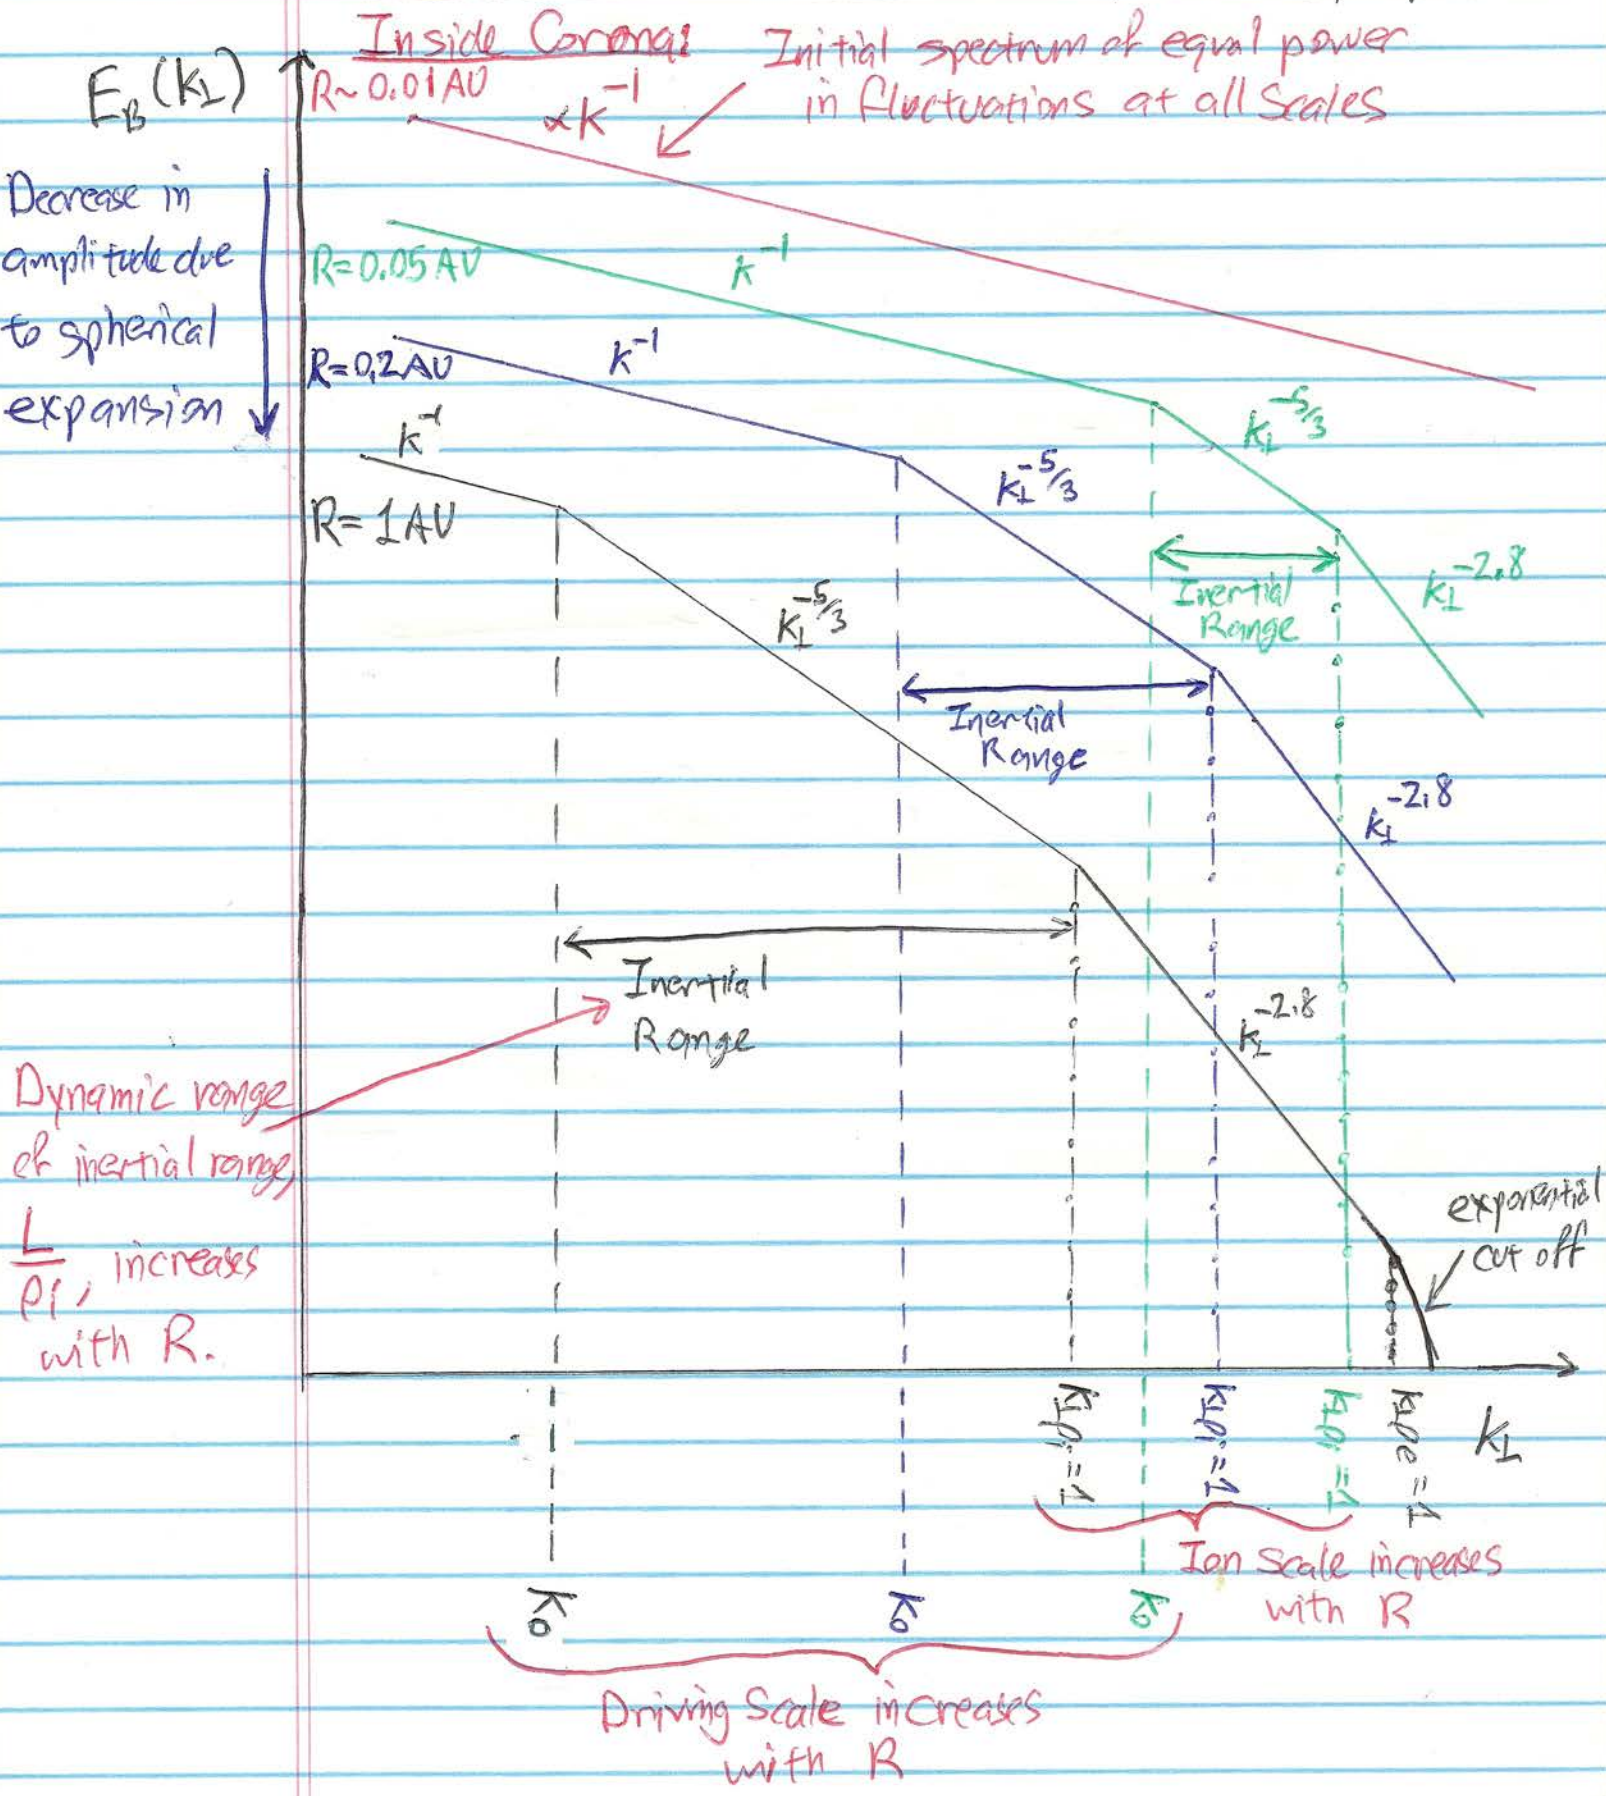 Inside Corona:
Initial spectrum of equal power
in fluctuations at all scales
E_B(k⊥)
R~0.01AU
∝k^-1
Decrease in
amplitude due
to spherical
expansion
R=0.05AU
k^-1
R=0.2AU
k^-1
k^-1
R=1AU
k⊥^-5/3
k⊥^-5/3
k⊥^-5/3
k⊥^-2.8
Inertial
Range
Inertial
Range
k⊥^-2.8
Inertial
Range
k⊥^-2.8
Dynamic range
of inertial range,
L/ρi, increases
with R.
exponential
cut off
k⊥ρi=1
k⊥ρi=1
k⊥ρi=1
k⊥ρe=1
k⊥
Ion Scale increases
with R
k0
k0
k0
Driving Scale increases
with R